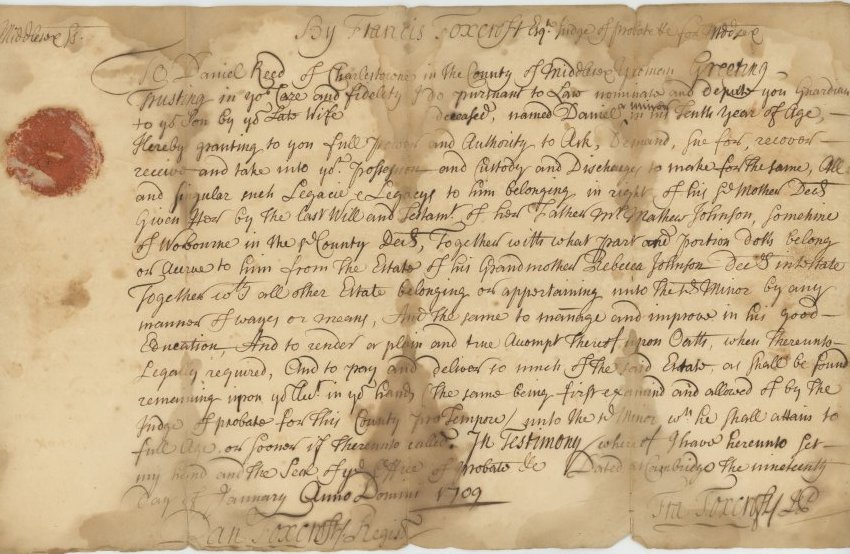 Middlesex ss. By Francis Foxcroft Esqr. Judge of Probate &c for Middsex
To Daniel Reed of Charlestowne in the County of Middlesex Yeoman Greeting
Trusting in yor. Care and fidelety I do pursuant to Law nominate and depute you Guardian
to yor Son by yor Late Wife deceased, named Daniel a minor in his Tenth year of Age, —
Hereby granting to you full Power and Authority to Ask, Demand, Sue for, recover —
receive and take into yor. Possession and Custody and Discharge to make for the same, All
and singular such Legacie & Legacys to him belonging in right of his sd. Mother Decd
Given Her by the Last Will and Testamt. of her Father Mr. Mathew Johnson, Sometime
of Wobourne in the sd. County Decd, Together with what part and portion doth belong
or Acrue to him from the Estate of his Grandmother Rebecca Johnson Decd intestate
Together wth all other Estate belonging or appertaining unto the sd Minor by any
manner of wayes or means, And the same to manage and improve in his good —
Education, And to render a plain and true Accompt thereof upon Oath, when thereunto —
Legally required, And to pay and deliver so much of the said Estate as shall be found
remaining upon yor Acct. in yor hands (the same being first examined and allowed of by the
Judge of probate for this County pro Tempore) unto the sd Minor wn. he shall attain to
full Age, or sooner if thereunto called. In Testimony whereof I have hereunto Set —
my hand and the Seal of ye Office of Probate &c Dated at Cambridge the nineteenth
Day of January Anno Domini 1709
Fra: Foxcroft
Foxcroft Regisr